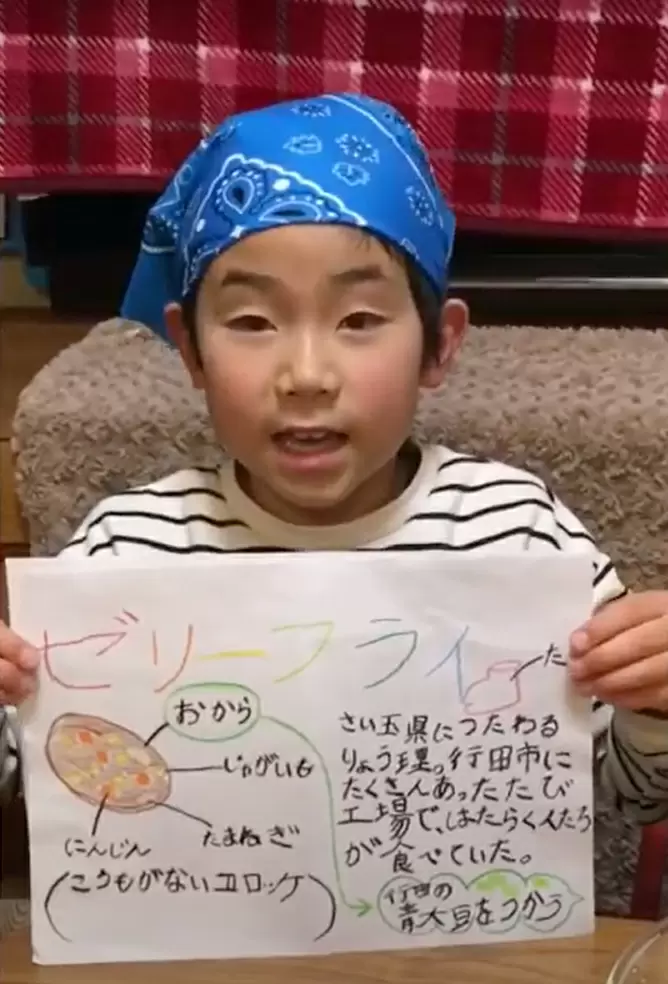 ゼリーフライ
た
おから
じゃがいも
にんじん
たまねぎ
(ころもがないコロッケ)
さい玉県につたわる
りょう理。行田市に
たくさんあったたび
工場で、はたらく人たち
が食べていた。
行田の
青大豆をつかう